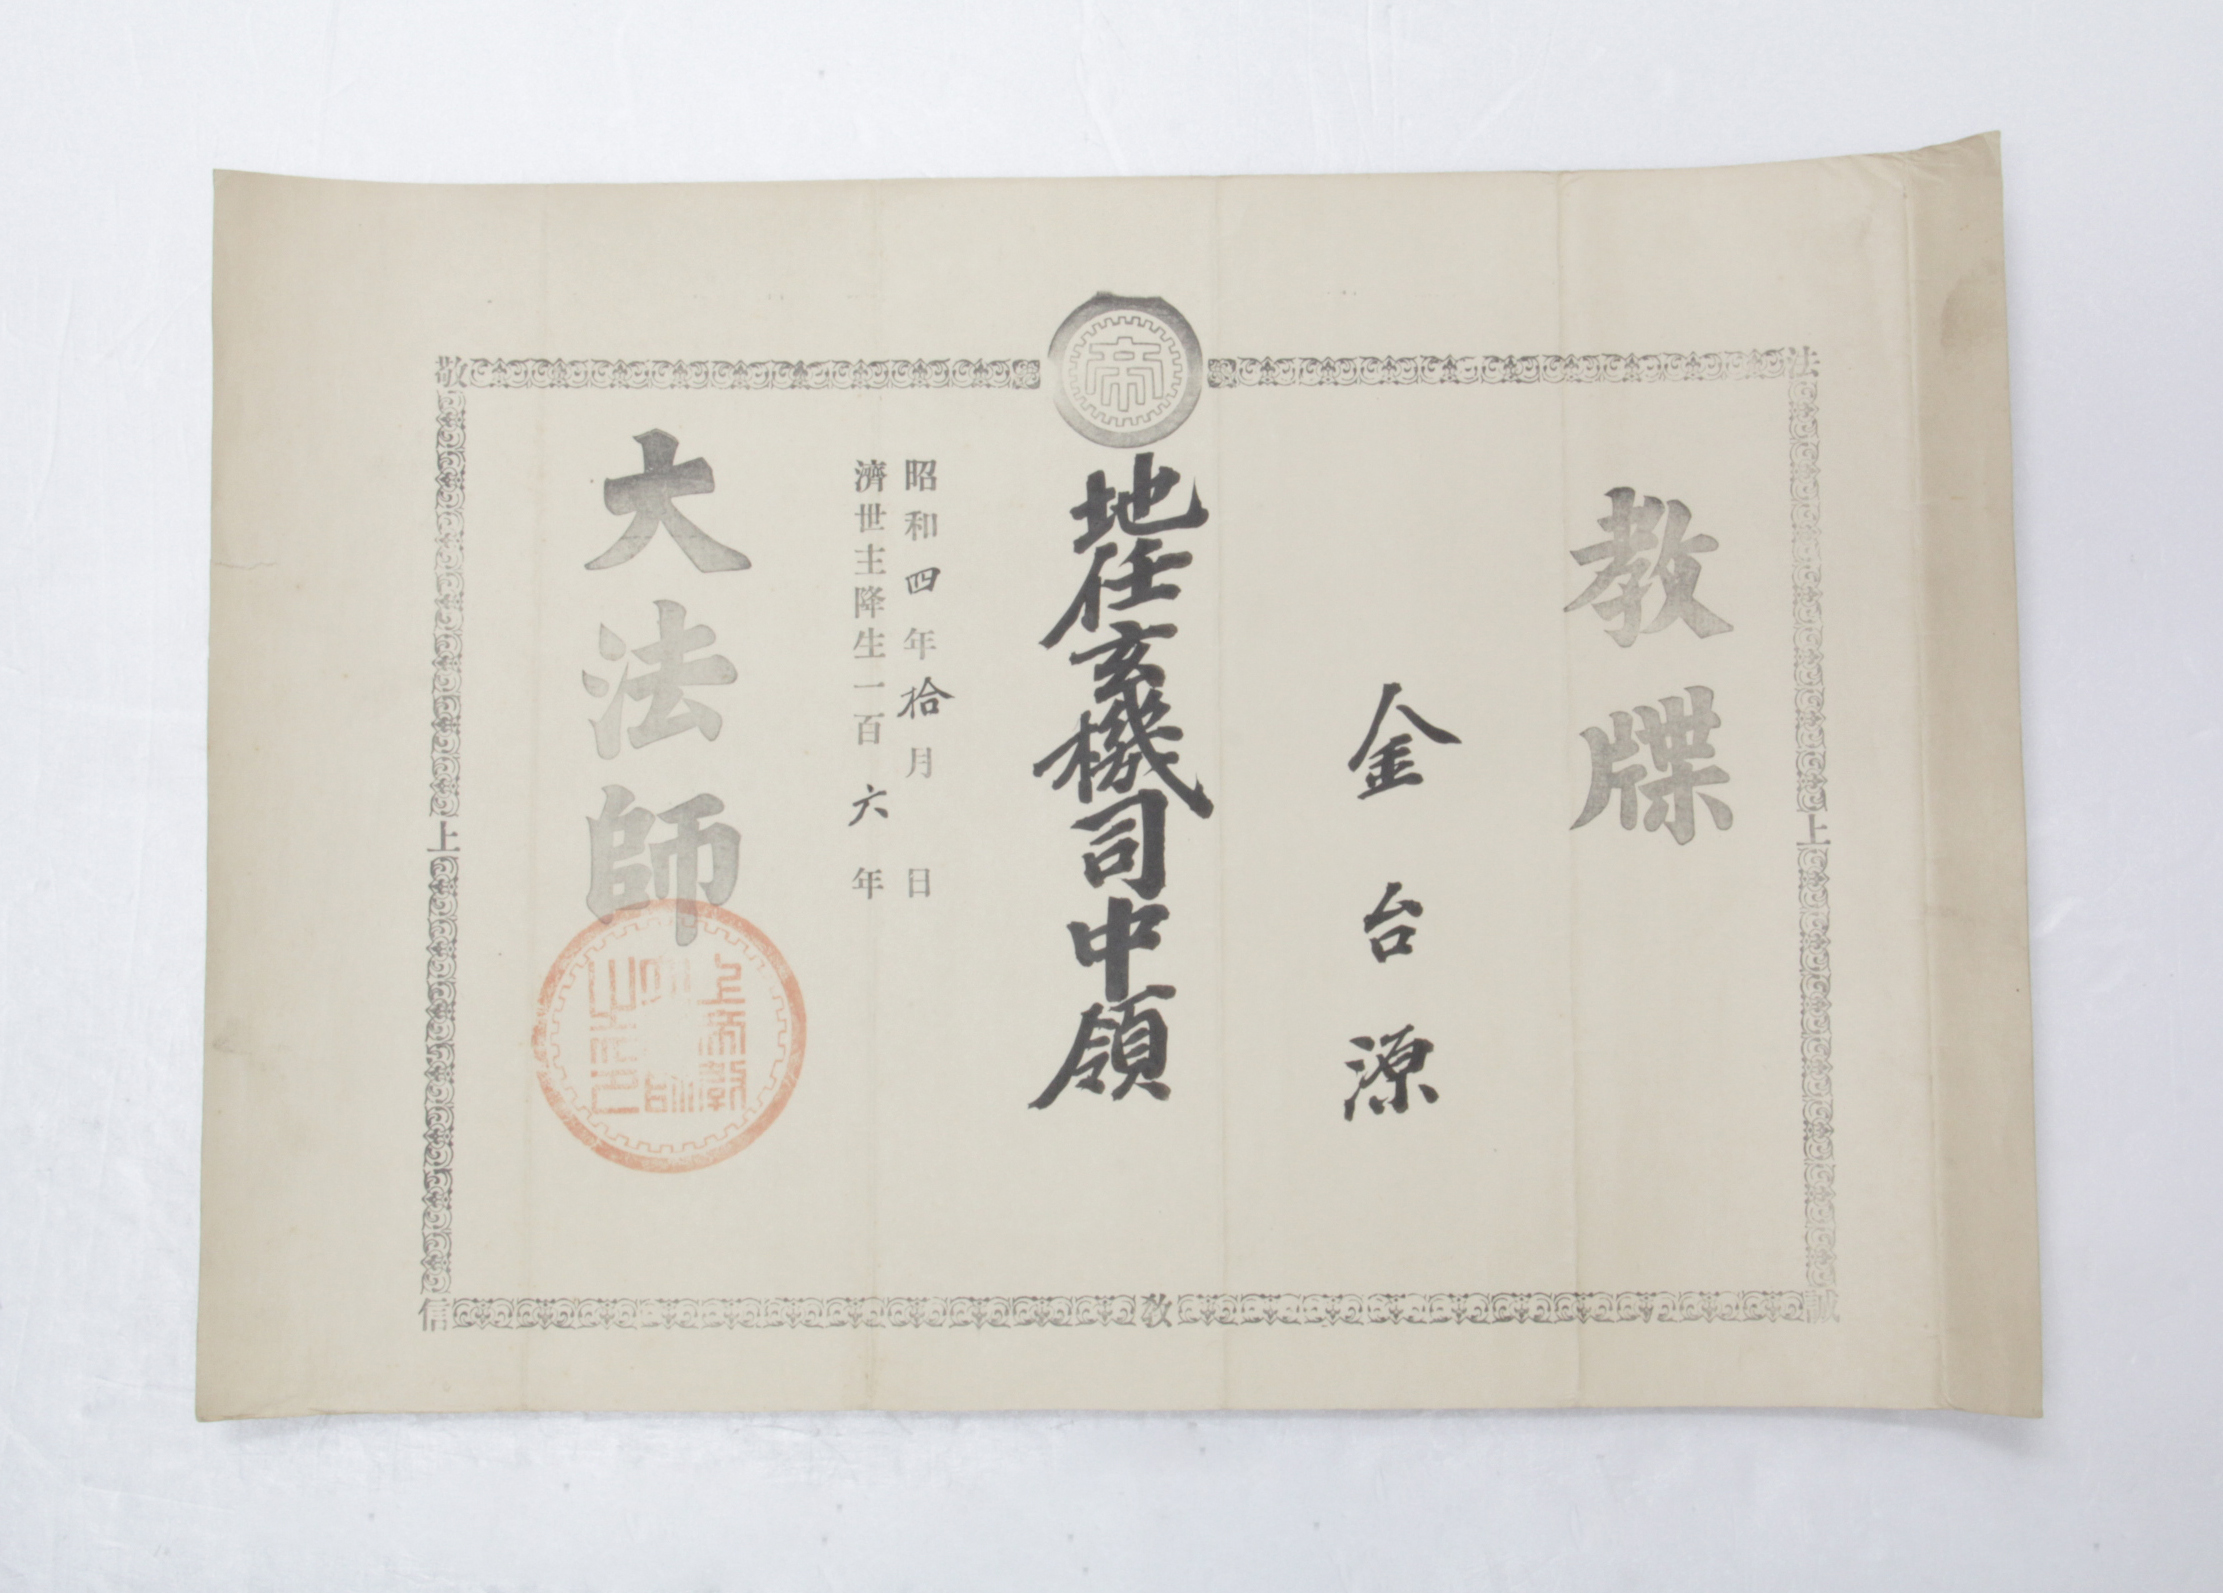 教牒
金台源
地任玄機司中領
昭和四年拾月　日
濟世主降生一百六年
大法師
帝
法
上
誠
教
信
上
敬
上帝教
大師
之印